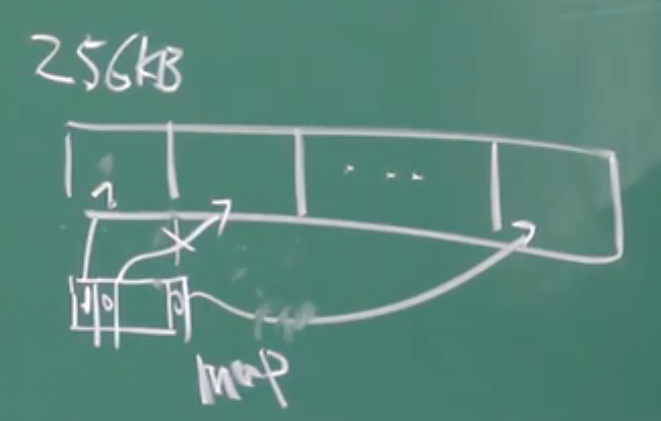 256KB
...
1 0 0
map